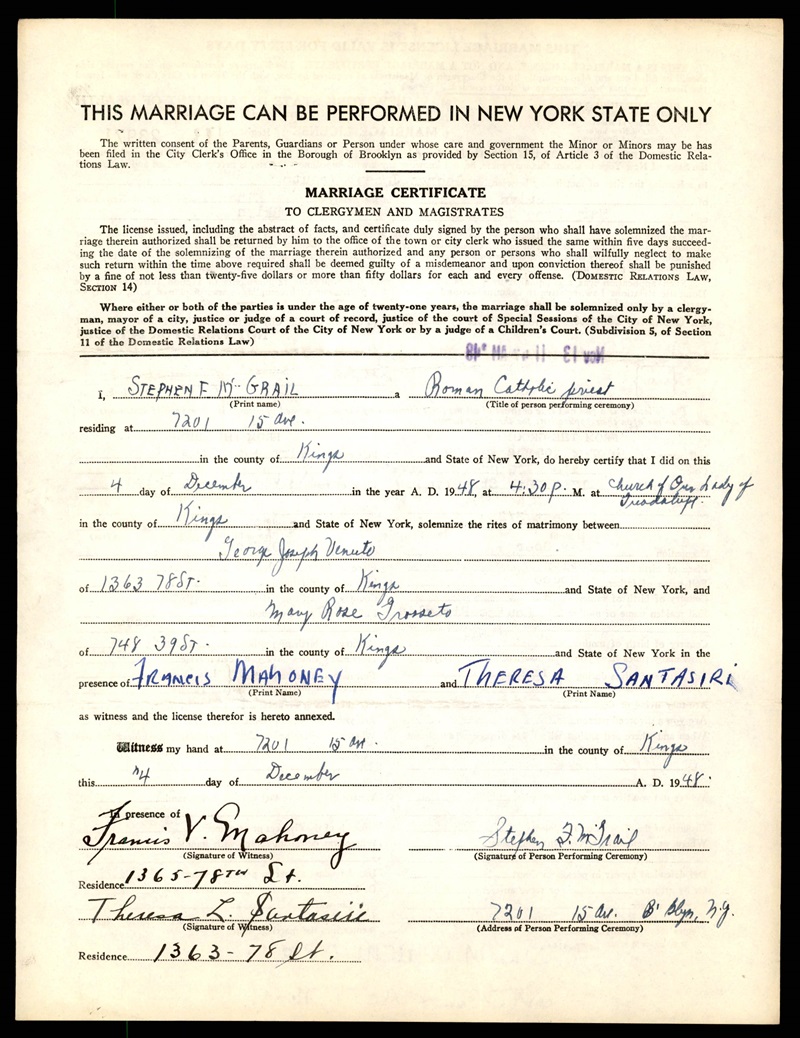 THIS MARRIAGE CAN BE PERFORMED IN NEW YORK STATE ONLY
The written consent of the Parents, Guardians or Person under whose care and government the Minor or Minors may be has
been filed in the City Clerk's Office in the Borough of Brooklyn as provided by Section 15, of Article 3 of the Domestic Rela-
tions Law.
MARRIAGE CERTIFICATE
TO CLERGYMEN AND MAGISTRATES
The license issued, including the abstract of facts, and certificate duly signed by the person who shall have solemnized the mar-
riage therein authorized shall be returned by him to the office of the town or city clerk who issued the same within five days succeed-
ing the date of the solemnizing of the marriage therein authorized and any person or persons who shall wilfully neglect to make
such return within the time above required shall be deemed guilty of a misdemeanor and upon conviction thereof shall be punished
by a fine of not less than twenty-five dollars or more than fifty dollars for each and every offense. (DOMESTIC RELATIONS LAW,
SECTION 14)
Where either or both of the parties is under the age of twenty-one years, the marriage shall be solemnized only by a clergy-
man, mayor of a city, justice or judge of a court of record, justice of the court of Special Sessions of the City of New York,
justice of the Domestic Relations Court of the City of New York or by a judge of a Children's Court. (Subdivision 5, of Section
11 of the Domestic Relations Law)
I, STEPHEN F. McGRAIL a Roman Catholic priest
(Print name) (Title of person performing ceremony)
residing at 7201 15 Ave.
in the county of Kings and State of New York, do hereby certify that I did on this
4 day of December in the year A. D. 1948, at 4:30 P. M. at Church of Our Lady of
Guadalupe
in the county of Kings and State of New York, solemnize the rites of matrimony between
George Joseph Venuto
of 1363 78 St. in the county of Kings and State of New York, and
Mary Rose Grosseto
of 748 39 St. in the county of Kings and State of New York in the
presence of FRANCIS MAHONEY and THERESA SANTASIRI
(Print Name) (Print Name)
as witness and the license therefor is hereto annexed.
Witness my hand at 7201 15 Ave. in the county of Kings
this 4 day of December A. D. 1948.
In presence of
Francis V. Mahoney Stephen F. McGrail
(Signature of Witness) (Signature of Person Performing Ceremony)
Residence 1365-78TH St.
Theresa L. Santasiri 7201 15 Ave. B'klyn, N.Y.
(Signature of Witness) (Address of Person Performing Ceremony)
Residence 1363-78 St.